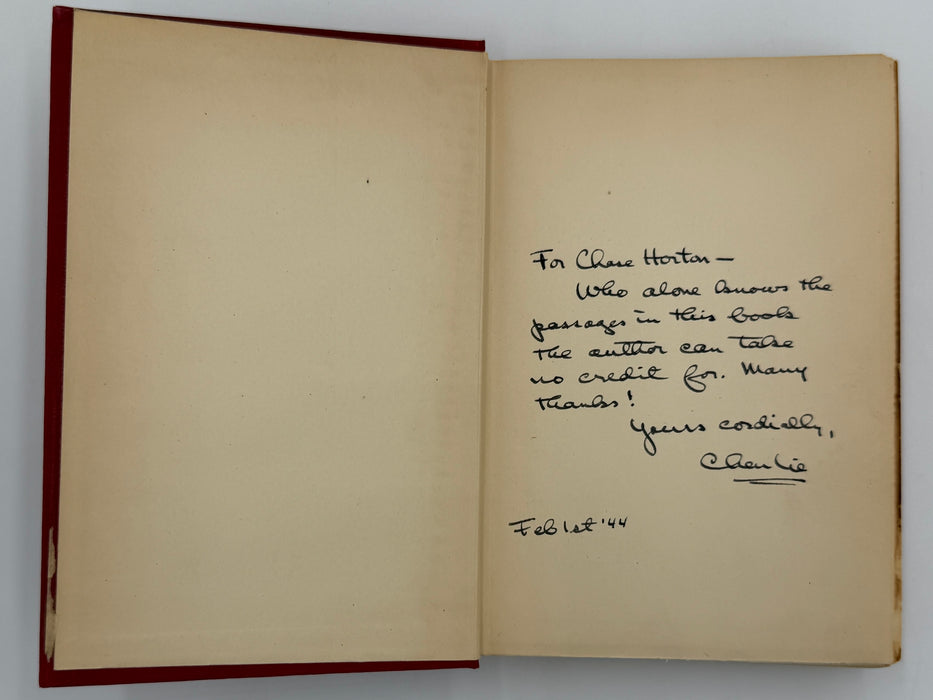 For Chase Horton —
Who alone knows the
passages in this book
the author can take
no credit for. Many
thanks!
Yours cordially,
Charlie
Feb 1st '44